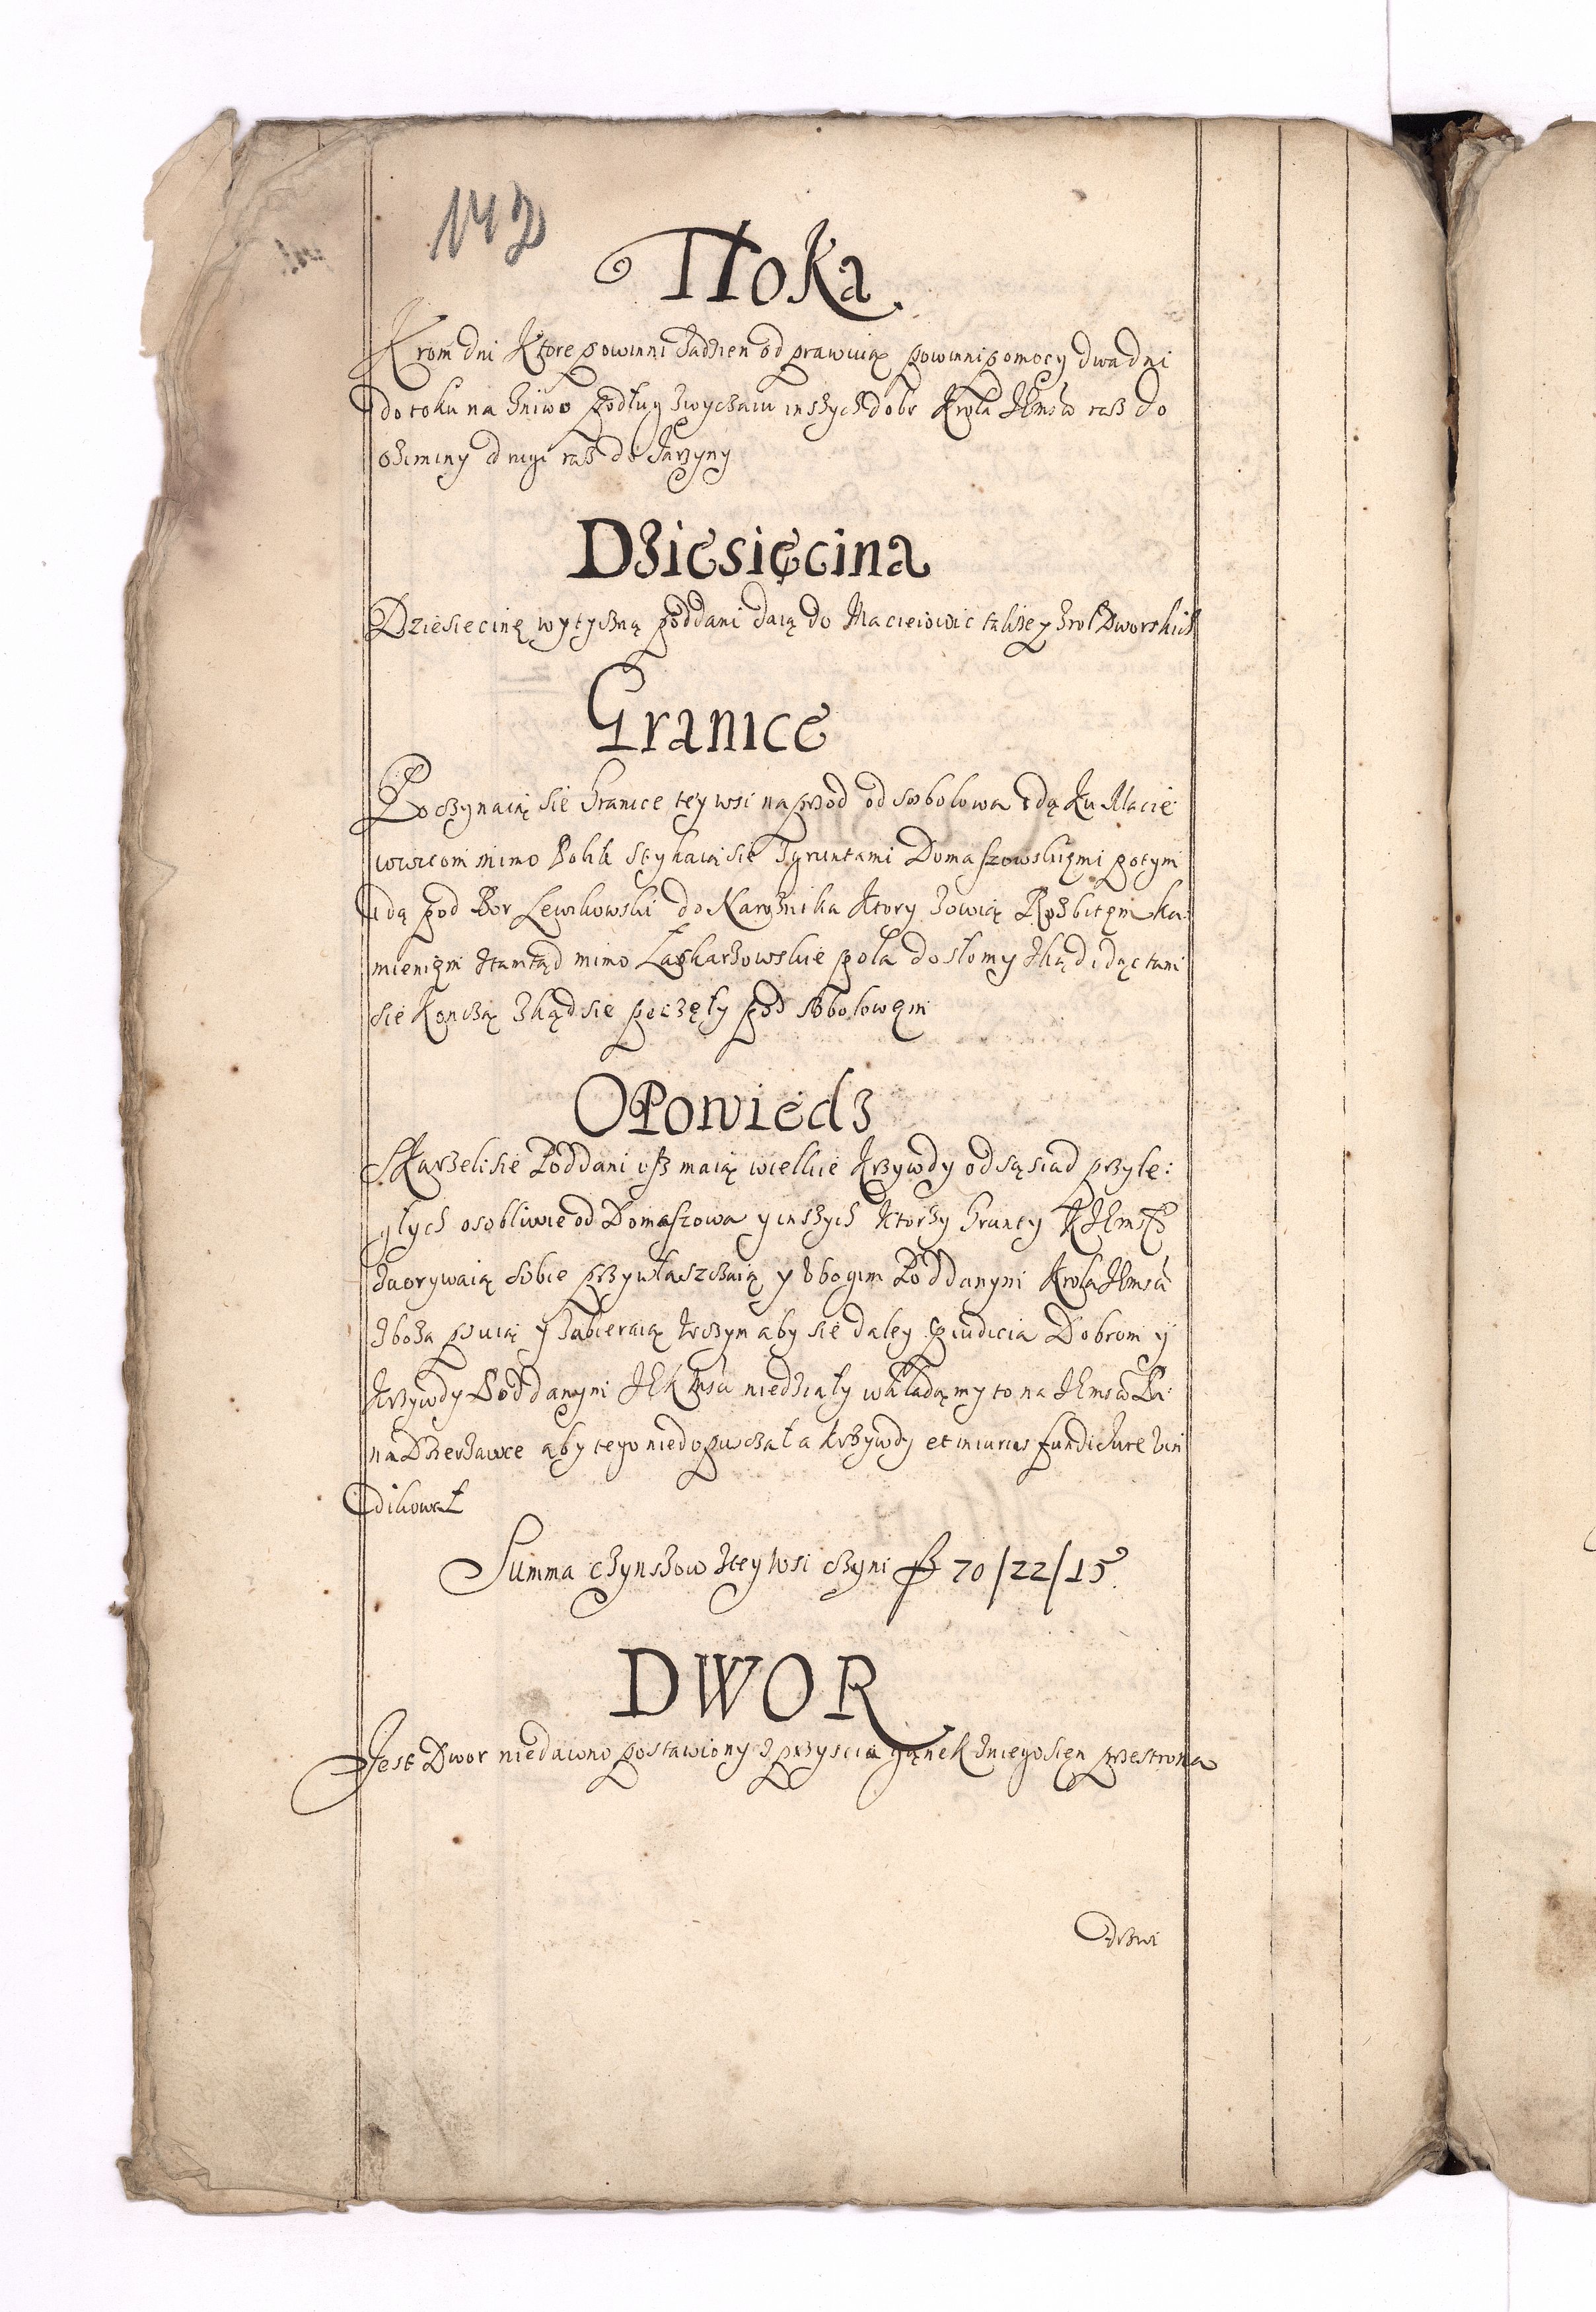 142
Tłoka
Krom dni Ktore powinni Zadzien odprawuią powinni pomocy dwa dni
do roku na żniwo podług zwyczaiu inszych dobr Krola JKmści raz do
oziminy drugi raz do Jarzyny
Dziesięcina
Dziesiecinę wytyczną poddani daią do Macieiowic takze y zrol Dworskich
Granice
Poczynaią sie Granice tey wsi naprzod od sobolowa idą ku Macie
iowicom mimo stykaiąsie zgruntami Domaszowskiemi potym
idą pod Bor Lewikowski do Narożnika Ktory zowią Rozbitym ka:
mieniem ztamtąd mimo Łaskarzowskie pola do słomy zkąd idąc tam
sie Kończą zkąd sie poczęły pod sobolowem
OPowiedz
SKarzeli sie Poddani isz maią wielkie Krzywdy od sąsiad przyle:
głych osobliwie od Domaszowa y inszych Ktorzy Grunty KJKmści
zaorywaią sobie przywłaszczaią y Vbogim Poddanym Krola JKmści
zboża psuią y zabieraią Wczym aby sie daley priudicia Dobrom y
Krzywdy Poddanym JKmści niedziały wkładamy to na JKmści Pa:
na Dzierżawce aby tego niedopusczał a krzywdy et iniurias fundi Jure Vin
dikował
Summa czynszow ztey Wsi czyni fl 70/22/15
DWOR
Jest Dwor niedawno postawiony z przyscia ganek zniego sien przestrona
drzwi